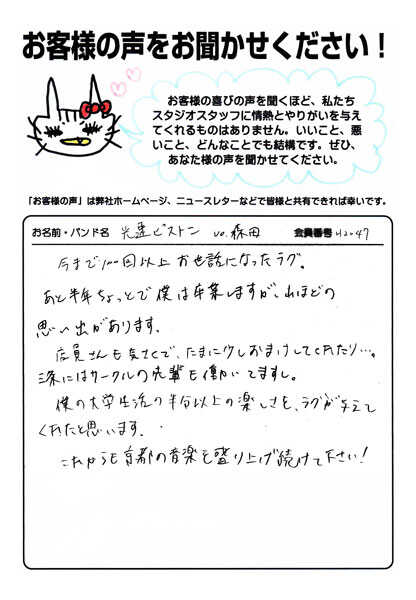 お客様の声をお聞かせください！
お客様の喜びの声を聞くほど、私たち
スタジオスタッフに情熱とやりがいを与え
てくれるものはありません。いいこと、悪
いこと、どんなことでも結構です。ぜひ、
あなた様の声を聞かせてください。
「お客様の声」は弊社ホームページ、ニュースレターなどで皆様と共有できれば幸いです。
お名前・バンド名 光速ピストン vo.森田 会員番号
今まで100回以上お世話になったラグ。
あと半年ちょっとで僕は卒業しますが、山ほどの
思い出があります。
店員さんも気さくで、たまに少しおまけしてくれたり…。
三条にはサークルの先輩も働いてますし。
僕の大学生活の半分以上の楽しさを、ラグが与えて
くれたと思います。
これからも京都の音楽を盛り上げ続けて下さい！